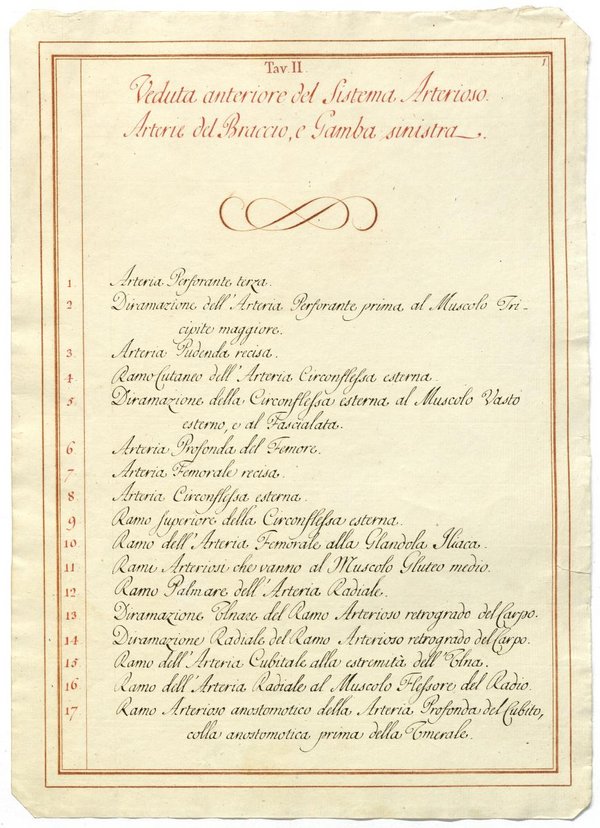 Tav. II.
1
Veduta anteriore del Sistema Arterioso.
Arterie del Braccio, e Gamba sinistra.
1 Arteria Perforante terza.
2 Diramazione dell'Arteria Perforante prima al Muscolo Tri-
cipite maggiore.
3 Arteria Pudenda recisa.
4 Ramo Cutaneo dell'Arteria Circonflessa esterna.
5 Diramazione della Circonflessa esterna al Muscolo Vasto
esterno, e al Fascialata.
6 Arteria Profonda del Femore.
7 Arteria Femorale recisa.
8 Arteria Circonflessa esterna.
9 Ramo superiore della Circonflessa esterna.
10 Ramo dell'Arteria Femorale alla Glandola Iliaca.
11 Rami Arteriosi che vanno al Muscolo Gluteo medio.
12 Ramo Palmare dell'Arteria Radiale.
13 Diramazione Ulnare del Ramo Arterioso retrogrado del Carpo.
14 Diramazione Radiale del Ramo Arterioso retrogrado del Carpo.
15 Ramo dell'Arteria Cubitale alla estremità dell'Ulna.
16 Ramo dell'Arteria Radiale al Muscolo Flessore del Radio.
17 Ramo Arterioso anostomotico della Arteria Profonda del Cubito,
colla anostomotica prima della Umerale.